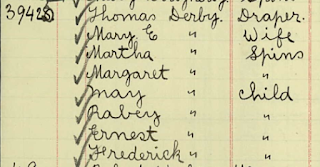 39428 Thomas Derby. Draper.
Mary E " Wife
Martha " Spins
Margaret " "
May " Child
Rabey " "
Ernest " "
Frederick " "